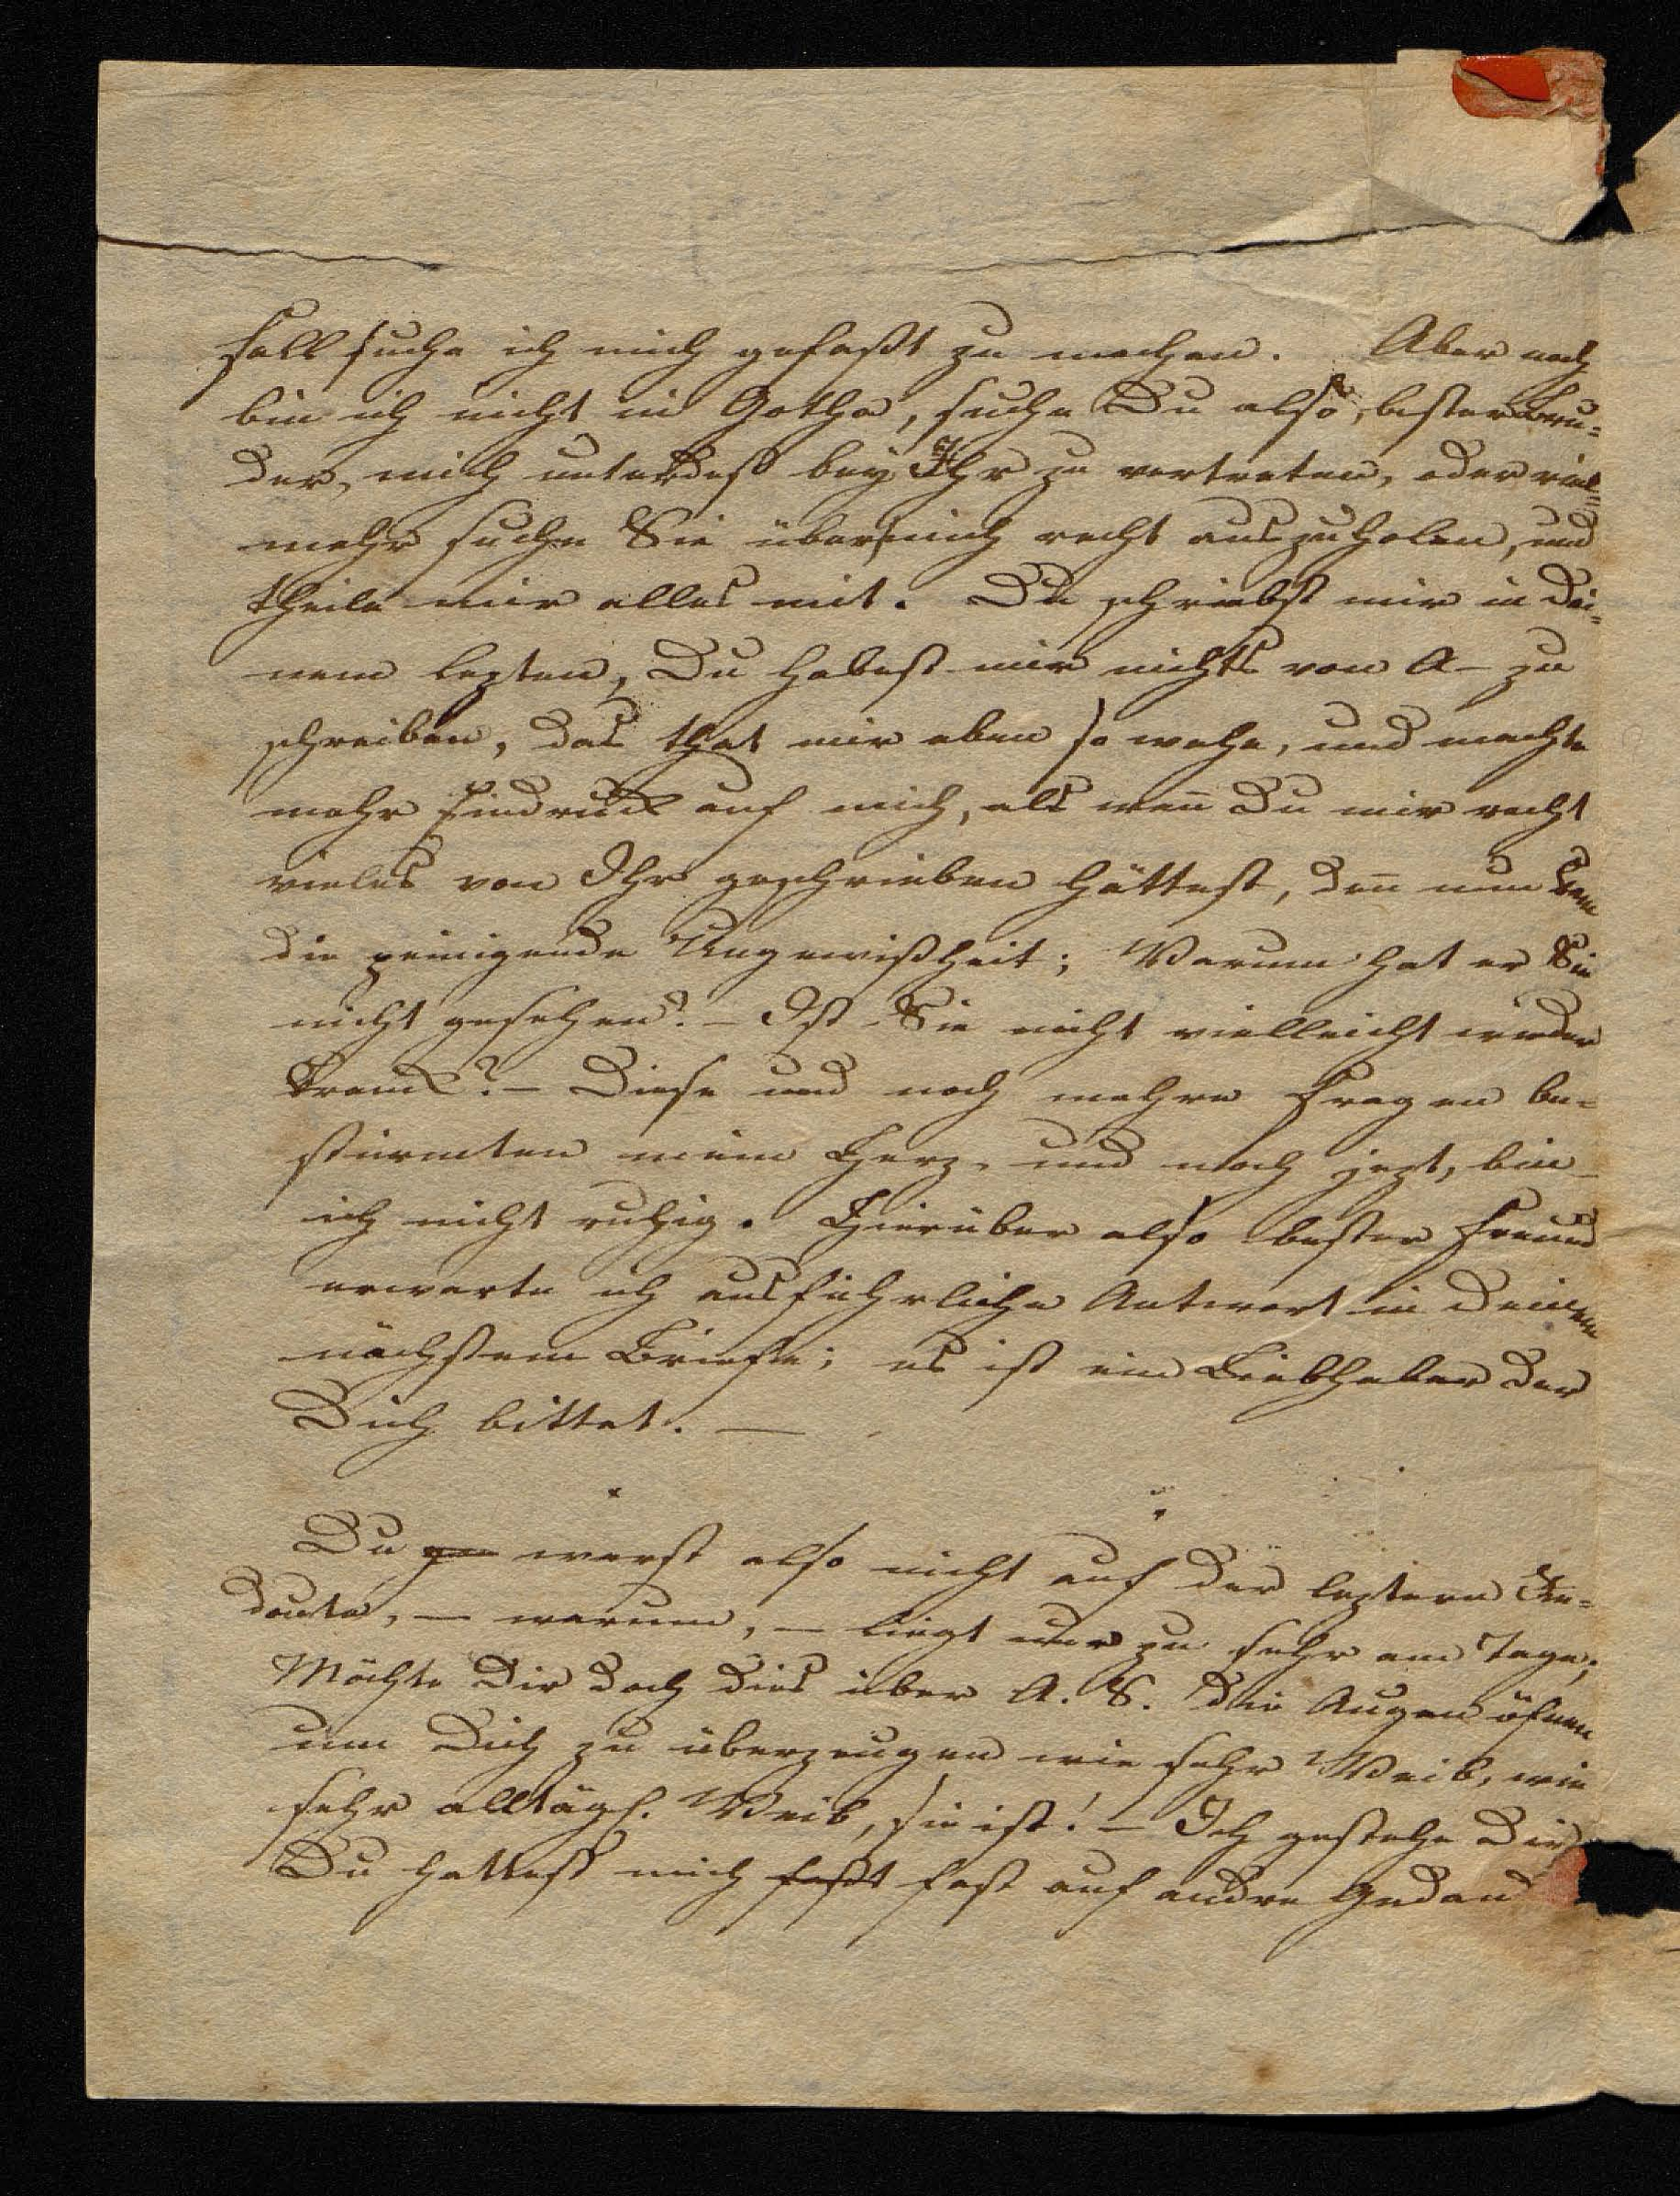 fall suche ich mich gefaßt zu machen. Aber noch
bin ich nicht in Gotha, suche Du also, bester Bru-
der, mich unterdeß bey Ihr zu vertreten, oder viel-
mehr suche Sie über mich recht auszuholen, und
theile mir alles mit. Du schriebst mir in Dei-
nem lezten, Du habest mir nichts von A- zu
schreiben, das that mir eben so wehe, und machte
mehr Eindruck auf mich, als wen̄ Du mir recht
vieles von Ihr geschrieben hättest, den̄ nun kam
die peinigende Ungewißheit; Warum hat er Sie
nicht gesehen? – Ist Sie nicht vielleicht wieder
krank? – Diese und noch mehre Fragen be-
stürmten mein Herz, und noch jezt, bin
ich nicht ruhig. Hierüber also bester Freund
erwarte ich ausführliche Antwort in Deinem
nächstem Briefe; es ist ein Liebhaber der
Dich bittet. —
Du warst also nicht auf der leztern
—warum, — liegt nur zu sehr am Tage;
Möchte Dir doch dies über A. S. die Augen öfnen
um Dich zu überzeugen wie sehr Weib, wie
sehr alltägl. Weib, sie ist! – Ich gestehe Dir
Du hattest mich faßt fast auf andre Gedank